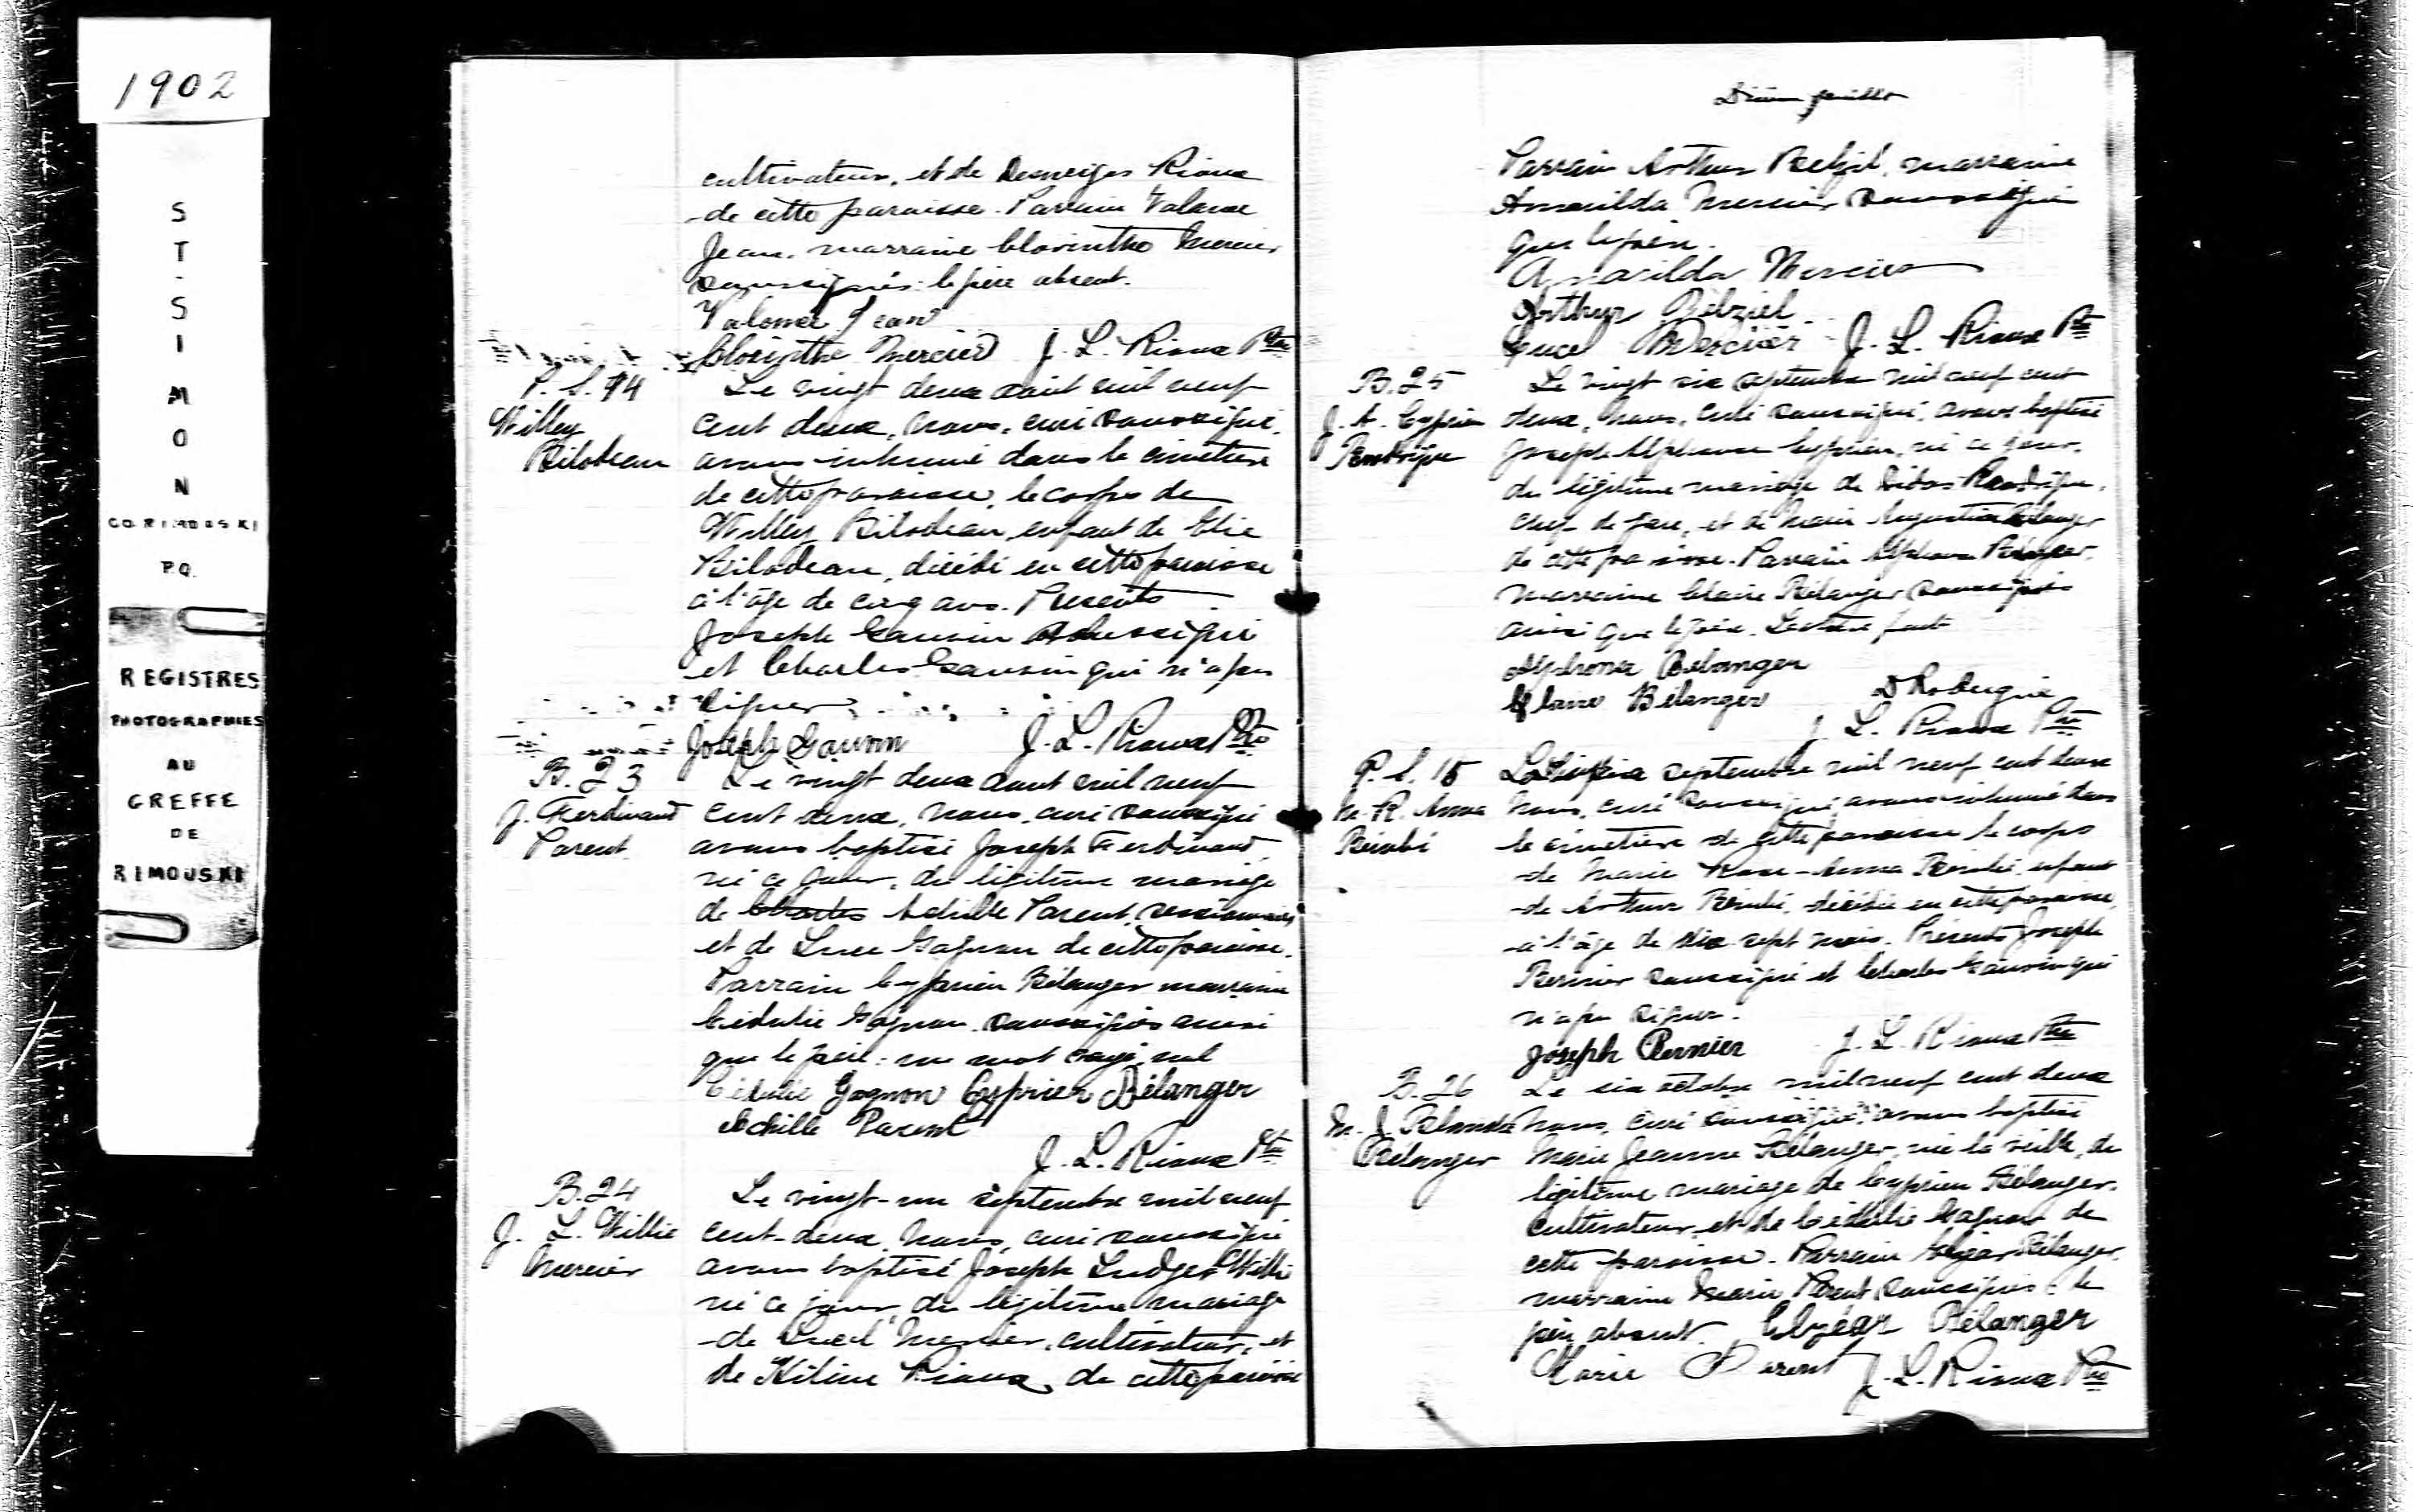 1902
ST-SIMON
CO. RIMOUSKI
P.Q.
REGISTRES
PHOTOGRAPHIES
AU
GREFFE
DE
RIMOUSKI
cultivateur, et de Desneiges Rioux
de cette paroisse. Parrain Valmer
Jean, marraine Clorinthe Mercier
soussignés: le père absent.
Valmer Jean
Clorinthe Mercier J. L. Rioux Ptre
P. S. 14
Willey
Bilodeau
Le vingt deux août mil neuf
cent deux, nous, curé soussigné,
avons inhumé dans le cimetière
de cette paroisse, le corps de
Willey Bilodeau, enfant de Elie
Bilodeau, décédé en cette paroisse
à l'âge de cinq ans. Présents
Joseph Gauvin soussigné
et Charles Gauvin qui n'a pu
signer
Joseph Gauvin J. L. Rioux Ptre
B. 23
J. Ferdinand
Parent
Le vingt deux août mil neuf
cent deux, nous, curé soussigné
avons baptisé Joseph Ferdinand,
né ce jour, du légitime mariage
de Charles Achille Parent,
et de Luce Gagnon de cette paroisse.
Parrain Cyprien Bélanger marraine
Cédulie Gagnon soussignés ainsi
que le père: un mot rayé nul
Cédulie Gagnon Cyprien Bélanger
Achille Parent
J. L. Rioux Ptre
B. 24
J. L. Willie
Mercier
Le vingt-un septembre mil neuf
cent-deux, nous, curé soussigné
avons baptisé Joseph Ludger Willie
né ce jour, du légitime mariage
de Luce Mercier, cultivateur, et
de Hélène Rioux, de cette paroisse
feuillet
Parrain Arthur Belzil, marraine
Amarilda Mercier soussignés
que le père.
Amarilda Mercier
Arthur Belziel
Luce Mercier J. L. Rioux Ptre
B. 25
J. A. Cyprien
Rodrigue
Le vingt six septembre mil neuf cent
deux, nous, curé soussigné, avons baptisé
Joseph Alphonse Cyprien, né ce jour,
du légitime mariage de Rodrigue,
chef de gare, et de Marie Augustine Bélanger
de cette paroisse. Parrain Alphonse Bélanger,
marraine Claire Bélanger soussignés
ainsi que le père. Lecture faite
Alphonse Bélanger
Claire Bélanger D Rodrigue
J. L. Rioux Ptre
P. S. 15
M. R. Anna
Bérubé
septembre mil neuf cent deux
nous, curé soussigné, avons inhumé dans
le cimetière de cette paroisse le corps
de Marie Rose-Anna Bérubé, enfant
de Arthur Bérubé, décédée en cette paroisse,
à l'âge de dix sept mois. Présents Joseph
Bernier soussigné et Charles Gauvin qui
n'a pu signer.
Joseph Bernier J. L. Rioux Ptre
B. 26
M. J.
Bélanger
Le six octobre mil neuf cent deux
nous, curé soussigné, avons baptisé
Marie Jeanne Bélanger, née la veille, du
légitime mariage de Cyprien Bélanger,
cultivateur, et de Cédulie Gagnon de
cette paroisse. Parrain Elzéar Bélanger,
marraine Marie Parent soussignés: le
père absent. Elzéar Bélanger
Marie Parent J. L. Rioux Ptre